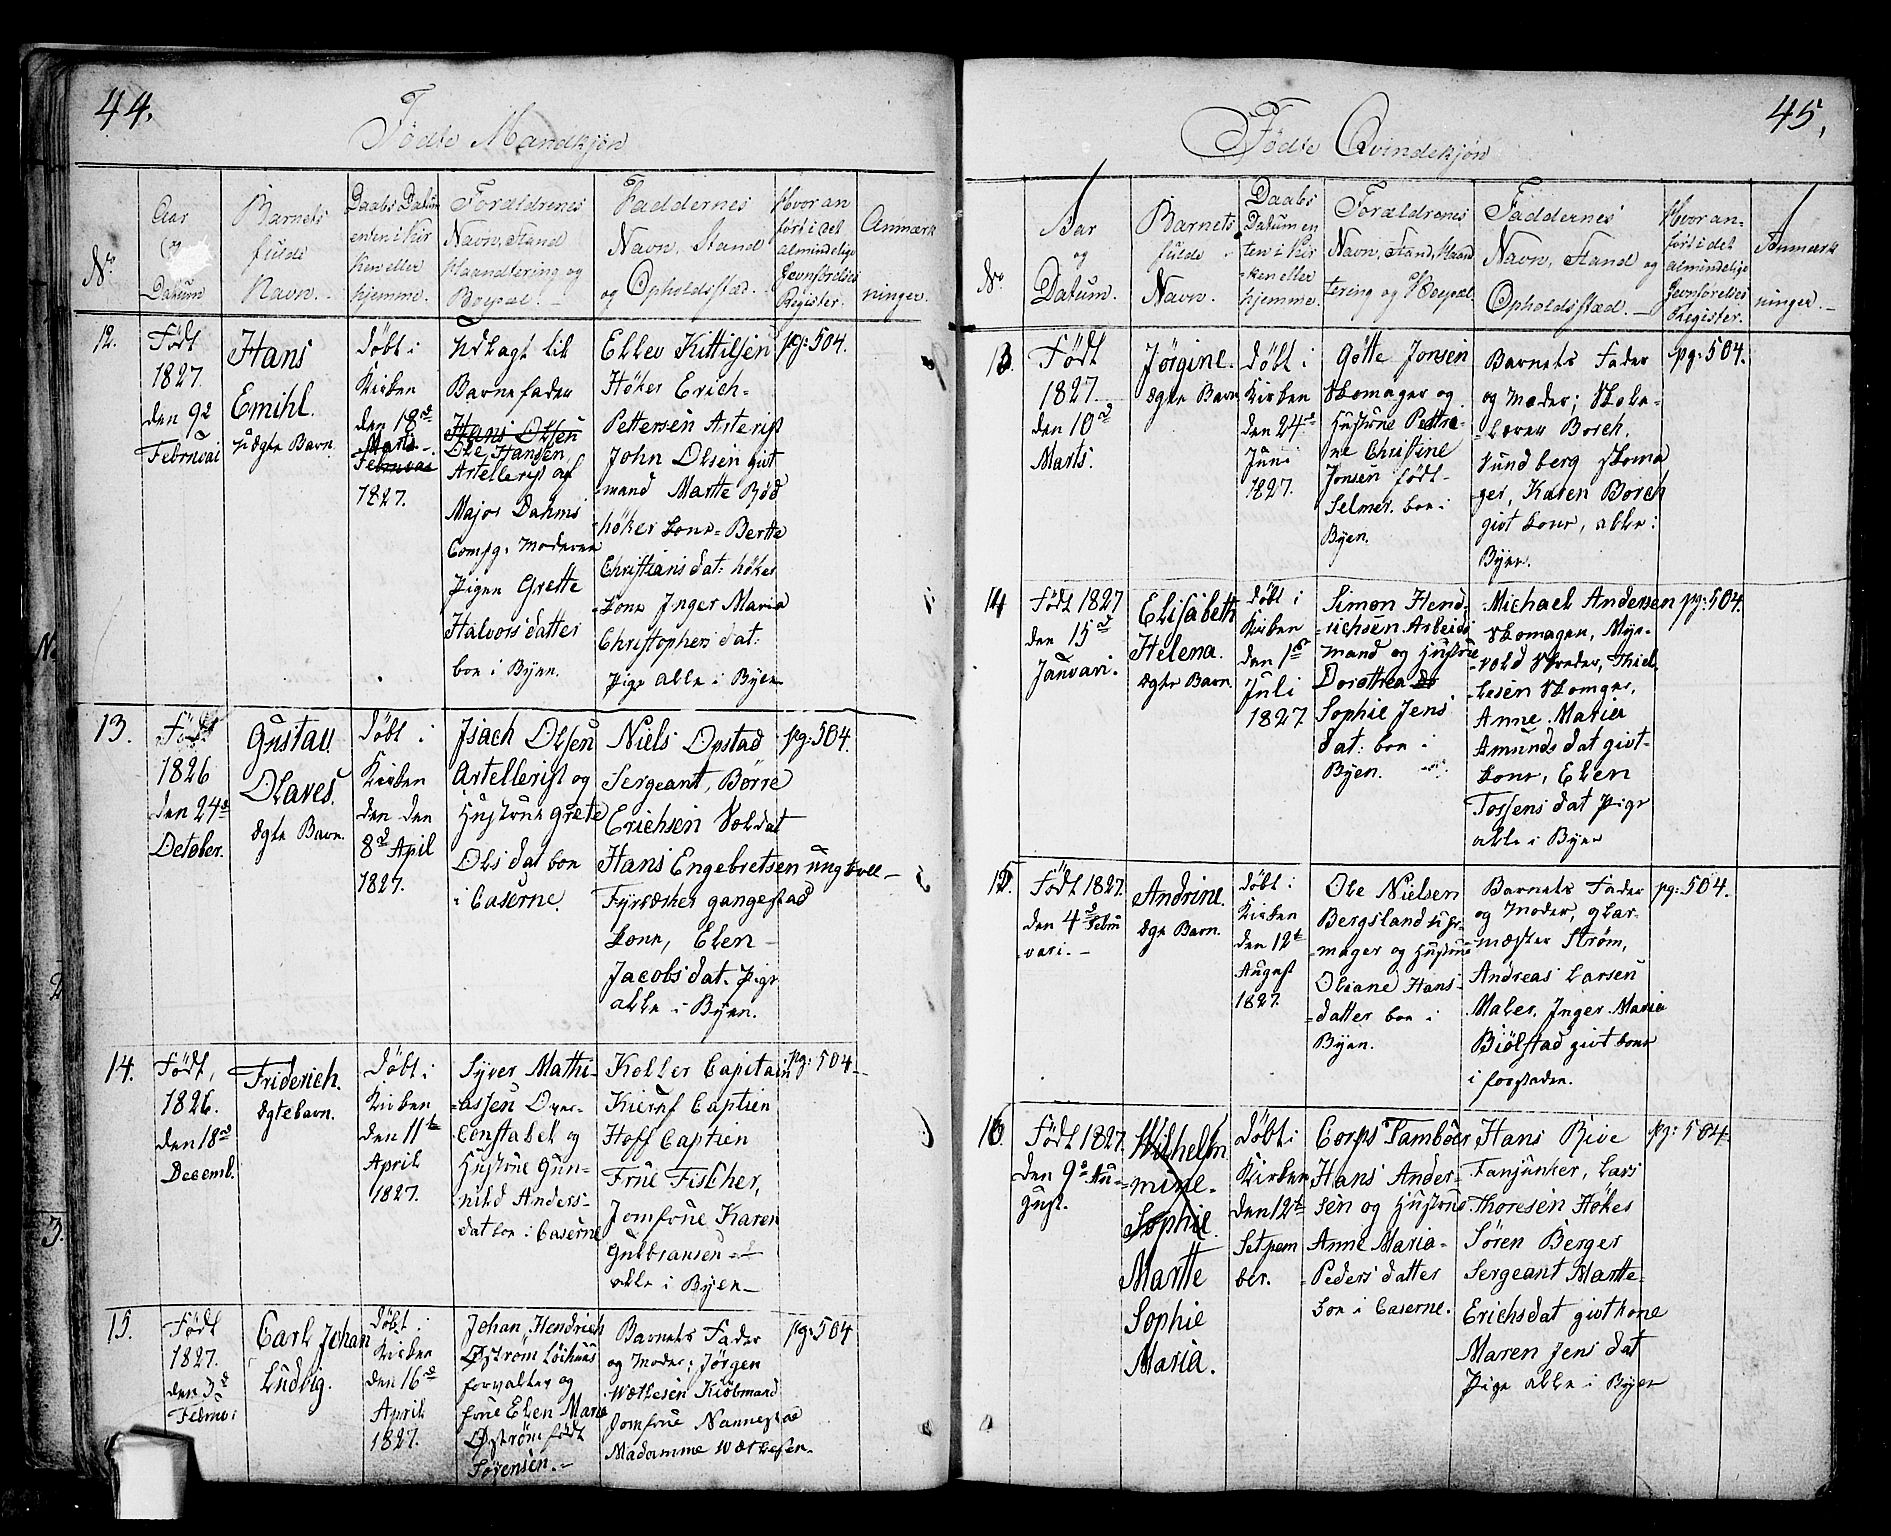 44.
Fødte Mandkjøn
No
Aar
og
Datum
Barnets
fulde
Navn.
Daabs Datum
enten i Kir
ken eller
hjemme.
Forældrenes
Navn, Stand
Haandtering og
Boepæl.
Faddernes
Navn, Stand
og Opholdsstæd.
Hvor an
ført i det
almindelige
Jevnførelses
Register.
Anmærk
ninger.
12.
Født
1827.
den 92
Februai
Hans
Emihl.
uægte Barn.
døbt i
Kirken
den 18de
Marts
Februai
1827.
Udlagt til
Barnefader
Hans Olsen
Ole Hansen
Artellerist af
Major Dahms
Comp. Moderen
Pigen Grette
Halvorsdatter
boe i Byen.
Ellev Kittilsen
Høker Erich
Pettersen Arterist
John Olsen givt
mand Martte Rød
høker kone Bertte
Christiansdat: høker
kone Inger Maria
Christophersdat:
Pige alle i Byen
pg: 504.
13.
Født
1826
den 24de
October.
Gustav
Olaves.
ægte Barn.
døbt i
Kirken
den den
8de Apil
1827.
Isach Olsen
Artellerist og
Hustrue Grete
Olsdat boe
i Caserne.
Niels Opstad
Sergeant, Børre
Erichsen Soldat
Hans Engebretsen ungkall
Fyrværker gangestad
kone, Elen
Jacobsdat. Pige
alle i Byen.
pg: 504.
14.
Født,
1826.
den 18de
Decemb.
Friderich.
ægte barn.
døbt i
Kirken
den 11te
April
1827.
Syver Mathi-
assen Over-
Constabel og
Hustrue Gun-
nild Anders-
dat boe i Caserne
Koller Capitain
Kierulf Captien
Hoff Captien
Frue Fischer,
Jomfrue Karen
Gulbransen
alle i Byen
pg: 504
15.
Født
1827.
den 3de
Februai
Carl Johan
Ludvig.
døbt i
Kirken
den 16de
April
1827.
Johan Hendrich
Østrøm
forvalter og
frue Elen Marie
Østrøm født
Sørensen.
Barnets Fader
og Moder; Jørgen
Wættesen Kiøbmand
Jomfrue Nannestad
Madamme Wættesen.
pg: 504
45,
Fødte Qvindekjøn
No
Aar
og
Datum.
Barnets
fulde
Navn.
Daabs
Datum en
ten i Kir
ken eller
hjemme.
Forældrenes
Navn, Stand, Haand
tering og Boepæl.
Faddernes
Navn, Stand og
Opholdsstæd.
Hvor an-
ført i det
almindelige
Jevnførelses
Register.
Anmærk
ninger.
13.
Født
1827.
den 10de
Marts.
Jørgine.
ægte Barn
døbt i
Kirken
den 24de
Juni
1827.
Gøtte Jonsen
Skomager og
Hustrue Pettre-
ne Christine
Jonsen født
Selmer. boe i
Byen.
Barnets Fader
og Moder; Skole-
lærer Borch,
Sundberg skoma
ger, Karen Borch
givt kone, alle i
Byen.
pg: 504.
14
Født 1827
den 15de
Januari.
Elisabeth
Helena.
ægte Barn
døbt i
Kirken
den 1ste
Juli
1827
Simon Hend-
richsen Arbeids
mand og Hustrue
Dorothea
Sophie Jens
dat: boe i
Byen.
Michael Andersen
Skomager, Myr-
vold Skreder, Thiel
lesen Skomger,
Anne Maria
Amunds dat givt
kone, Elen
Tossens dat Pige
alle i Byen
pg: 504.
15.
Født 1827.
den 4de Febru
vari.
Andrine.
ægte Barn.
døbt i
Kirken
den 12te
August
1827.
Ole Nielsen
Bergsland uhr-
mager og Hustrue
Oliane Hans-
datter boe i
Byen.
Barnets Fader
og Moder, glar-
mæster Strøm,
Andreas Larsen
Maler, Inger Maria
Biølstad givt kone
i forstaden.
pg: 504.
16.
Født 1827.
den 9de Au-
gust.
Wilhelm
mine
Sophie
Martte
Sophie
Maria.
døbt i
Kirken
den 12te
Setpem
ber.
Corps Tambour
Hans Ander-
sen og Hustrue
Anne Maria
Peders datter
boe i Caserne.
Hans Rive
Fanjunker, Lars
Thoresen Høker
Søren Berger
Sergeant Martte
Erichsdat givt kone
Maren Jens dat
Pige alle i Byen
pg: 504